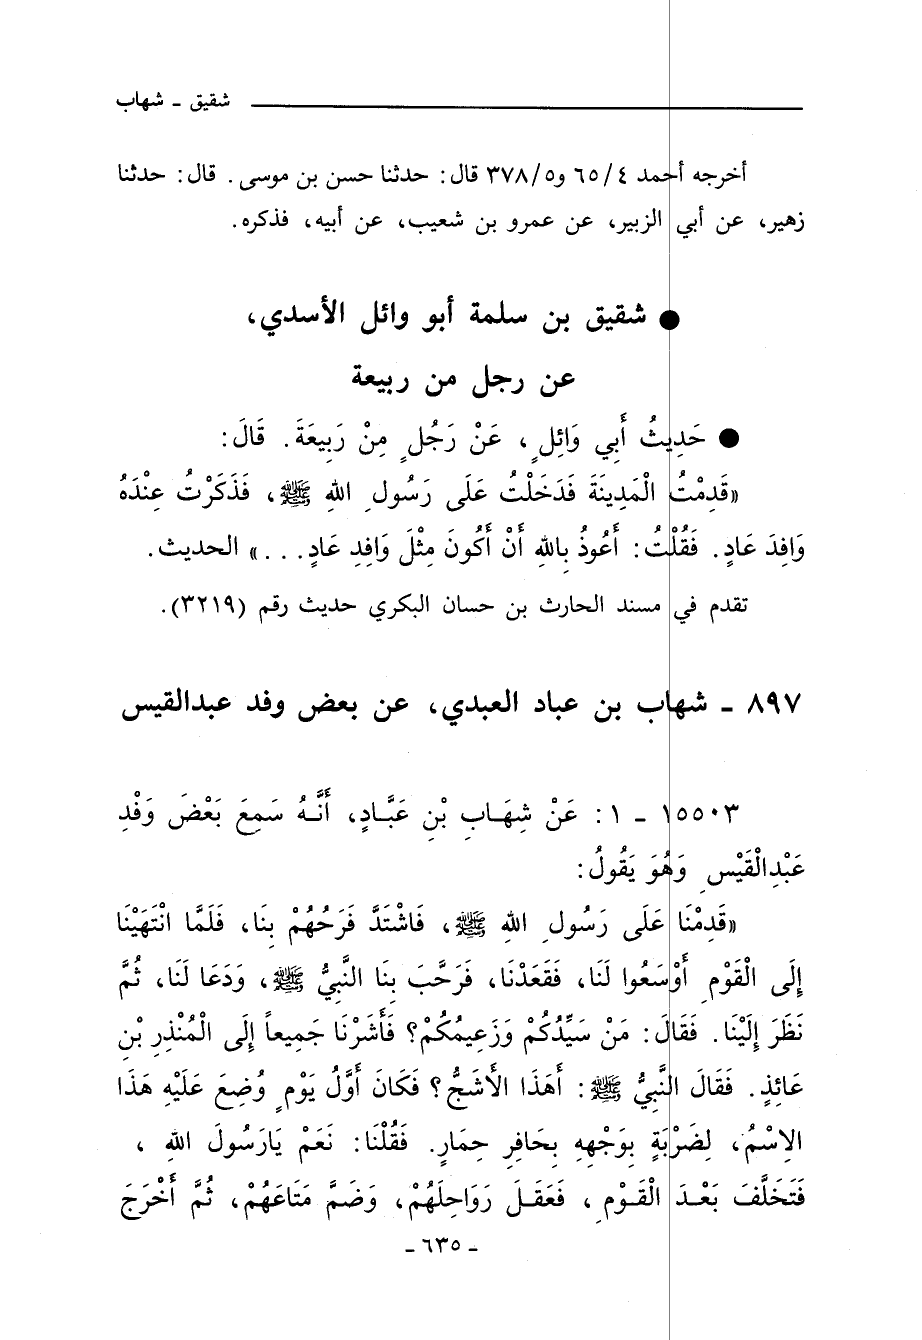 شقيق ـ شهاب
أخرجه أحمد ٦٥/٤ و٣٧٨/٥ قال: حدثنا حسن بن موسى. قال: حدثنا
زهير، عن أبي الزبير، عن عمرو بن شعيب، عن أبيه، فذكره.
● شقيق بن سلمة أبو وائل الأسدي،
عن رجل من ربيعة
● حَدِيثُ أَبِي وَائِلٍ، عَنْ رَجُلٍ مِنْ رَبِيعَةَ. قَالَ:
«قَدِمْتُ الْمَدِينَةَ فَدَخَلْتُ عَلَى رَسُولِ اللهِ ﷺ، فَذَكَرْتُ عِنْدَهُ
وَافِدَ عَادٍ. فَقُلْتُ: أَعُوذُ بِاللهِ أَنْ أَكُونَ مِثْلَ وَافِدِ عَادٍ...» الحديث.
تقدم في مسند الحارث بن حسان البكري حديث رقم (٣٢١٩).
٨٩٧ ـ شهاب بن عباد العبدي، عن بعض وفد عبدالقيس
١٥٥٠٣ ـ ١: عَنْ شِهَابِ بْنِ عَبَّادٍ، أَنَّهُ سَمِعَ بَعْضَ وَفْدِ
عَبْدِالْقَيْسِ وَهُوَ يَقُولُ:
«قَدِمْنَا عَلَى رَسُولِ اللهِ ﷺ، فَاشْتَدَّ فَرَحُهُمْ بِنَا، فَلَمَّا انْتَهَيْنَا
إِلَى الْقَوْمِ أَوْسَعُوا لَنَا، فَقَعَدْنَا، فَرَحَّبَ بِنَا النَّبِيُّ ﷺ، وَدَعَا لَنَا، ثُمَّ
نَظَرَ إِلَيْنَا. فَقَالَ: مَنْ سَيِّدُكُمْ وَزَعِيمُكُمْ؟ فَأَشَرْنَا جَمِيعاً إِلَى الْمُنْذِرِ بْنِ
عَائِذٍ. فَقَالَ النَّبِيُّ ﷺ: أَهَذَا الأَشَجُّ؟ فَكَانَ أَوَّلُ يَوْمٍ وُضِعَ عَلَيْهِ هَذَا
الاِسْمُ، لِضَرْبَةٍ بِوَجْهِهِ بِحَافِرِ حِمَارٍ. فَقُلْنَا: نَعَمْ يَارَسُولَ اللهِ،
فَتَخَلَّفَ بَعْدَ الْقَوْمِ، فَعَقَلَ رَوَاحِلَهُمْ، وَضَمَّ مَتَاعَهُمْ، ثُمَّ أَخْرَجَ
ـ ٦٣٥ ـ